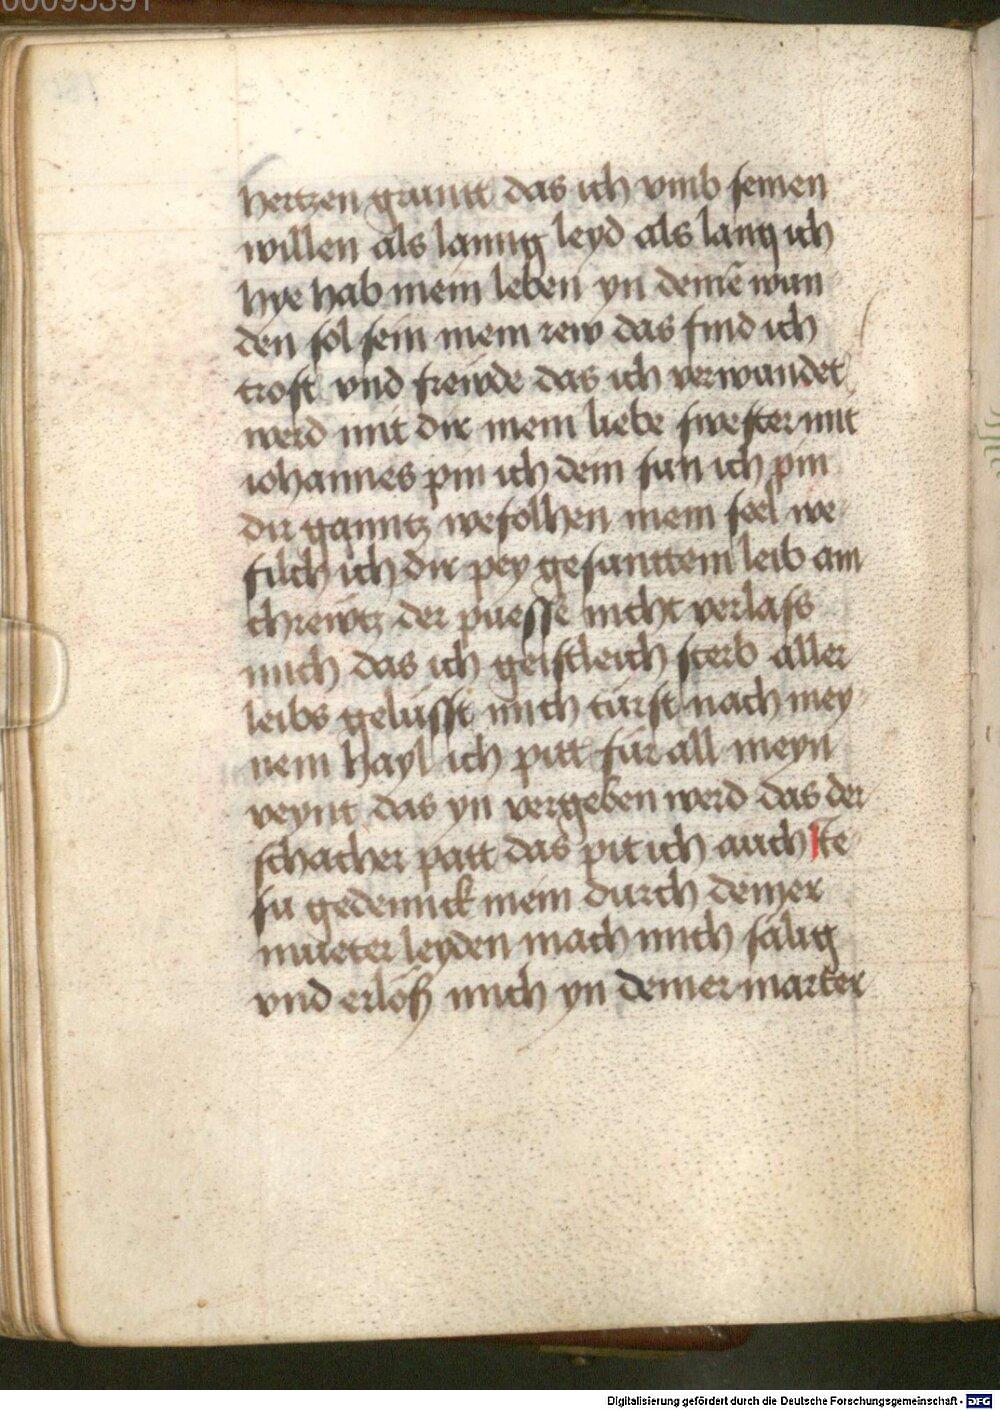 00095391
hertzen gruntt das ich vmb seinen
willen als lanng leyd als lang ich
hye hab mein leben yn deinē wun
den sol sein mein rew das find ich
trost vnd frewde das ich verwundet
werd mit dir mein liebe swester mit
iohannes pin ich dein sun ich pin
dir ganntz wefolhen mein seel we
filch ich dir pey gesunttem leib am
chrewtz der puesse nicht verlass
mich das ich geistleich sterb aller
leibs gelüsst mich türst nach mey
nem hayl ich pitt für all meyn
veynt das yn vergeben werd das der
schacher patt das pit ich auch Ie
su gedennck mein durch deiner
mueter leyden mach mich sälig
vnd erlöß mich yn deiner marter
Digitalisierung gefördert durch die Deutsche Forschungsgemeinschaft - DFG